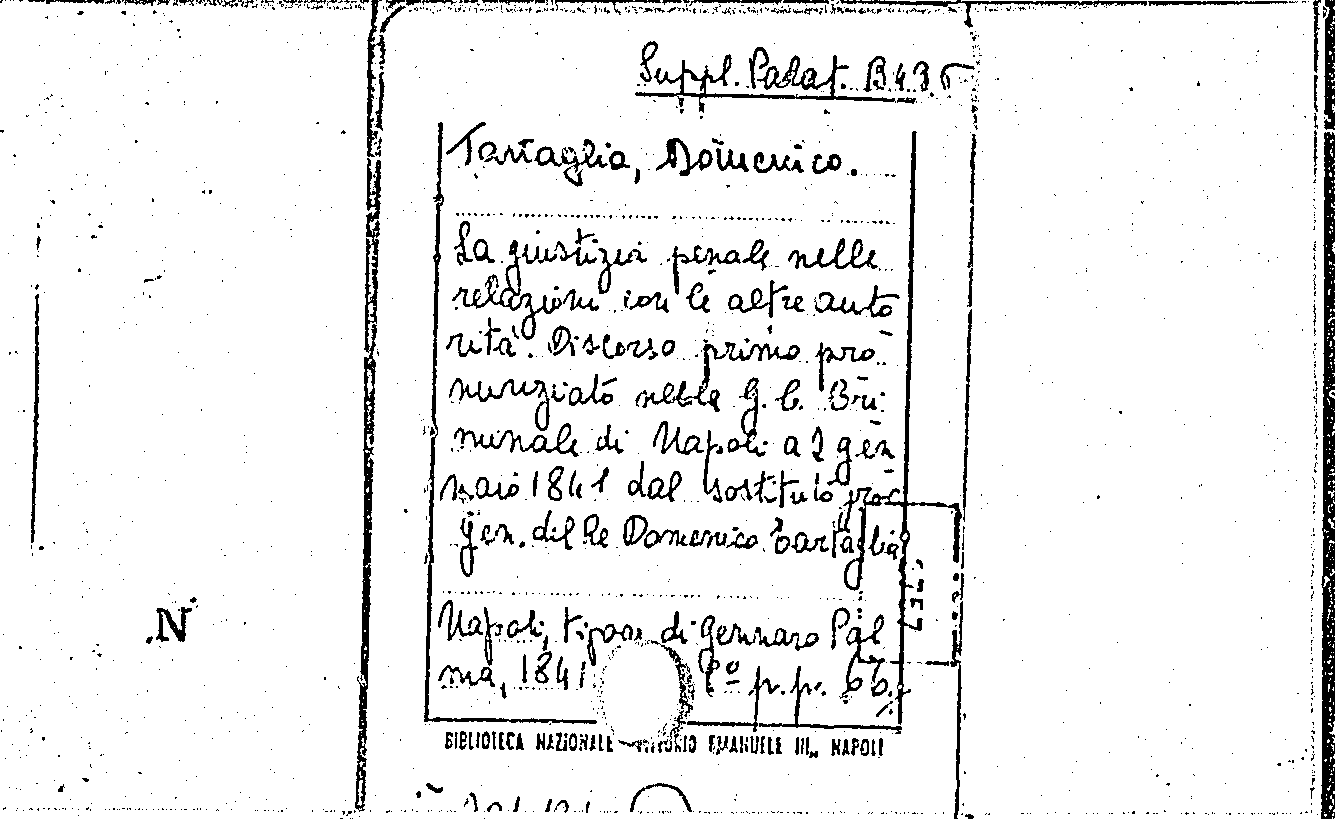 Suppl. Palat. B 43
Tartaglia, Domenico.
La giustizia penale nelle
relazioni con le altre auto
rità. Discorso primo pro
nunziato nella G. C. Cri
minale di Napoli a 2 gen
naio 1841 dal sostituto proc
gen. del Re Domenico Tartaglia
Napoli, tipog. di Gennaro Pal
ma, 1841 8º p.p. 66.
BIBLIOTECA NAZIONALE VITTORIO EMANUELE III, NAPOLI
N